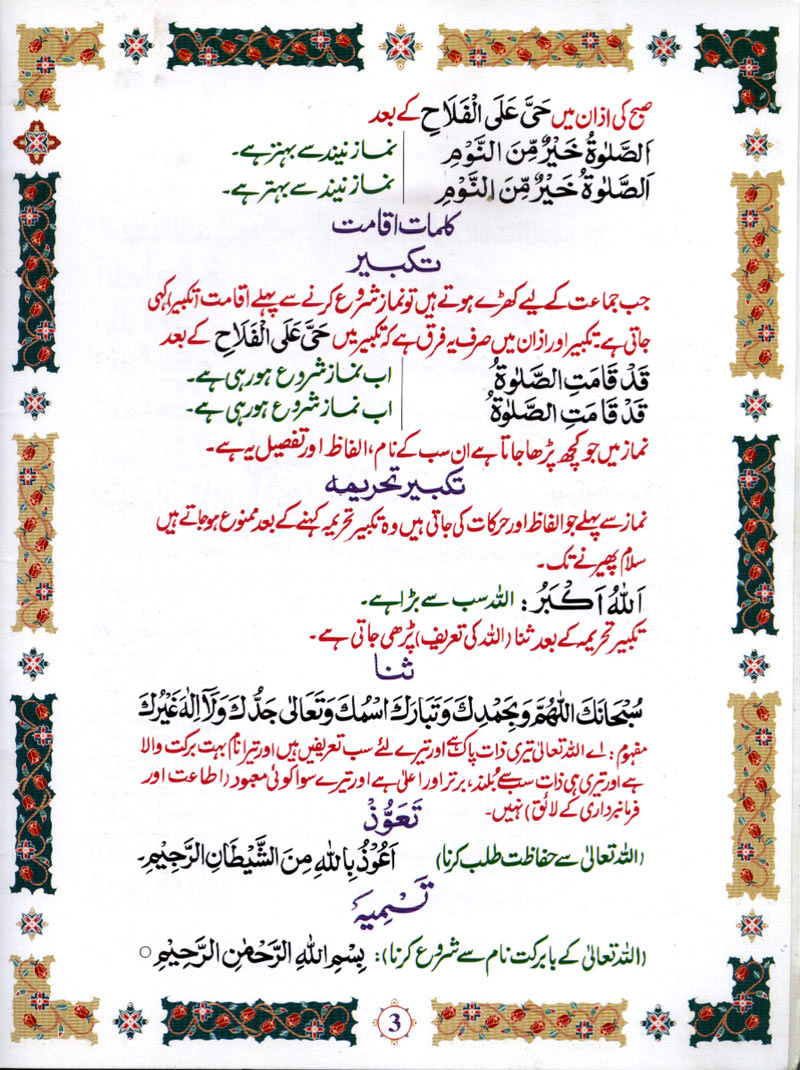 صبح کی اذان میں حَیَّ عَلَی الْفَلَاحِ کے بعد
اَلصَّلٰوةُ خَیْرٌ مِّنَ النَّوْمِ نماز نیند سے بہتر ہے۔
اَلصَّلٰوةُ خَیْرٌ مِّنَ النَّوْمِ نماز نیند سے بہتر ہے۔
کلمات اقامت
تکبیر
جب جماعت کے لیے کھڑے ہوتے ہیں تو نماز شروع کرنے سے پہلے اقامت (تکبیر) کہی
جاتی ہے۔ تکبیر اور اذان میں صرف یہ فرق ہے کہ تکبیر میں حَیَّ عَلَی الْفَلَاحِ کے بعد
قَدْ قَامَتِ الصَّلٰوةُ اب نماز شروع ہو رہی ہے۔
قَدْ قَامَتِ الصَّلٰوةُ اب نماز شروع ہو رہی ہے۔
نماز میں جو کچھ پڑھا جاتا ہے ان سب کے نام، الفاظ اور تفصیل یہ ہے۔
تکبیر تحریمہ
نماز سے پہلے جو الفاظ اور حرکات کی جاتی ہیں وہ تکبیر تحریمہ کہنے کے بعد ممنوع ہو جاتے ہیں
سلام پھیرنے تک۔
اَللّٰهُ اَکْبَرُ: اللہ سب سے بڑا ہے۔
تکبیر تحریمہ کے بعد ثنا (اللہ کی تعریف) پڑھی جاتی ہے۔
ثنا
سُبْحَانَكَ اللّٰهُمَّ وَبِحَمْدِكَ وَتَبَارَكَ اسْمُكَ وَتَعَالٰی جَدُّكَ وَلَآ اِلٰهَ غَیْرُكَ
مفہوم: اے اللہ تعالیٰ تیری ذات پاک ہے اور تیرے لئے سب تعریفیں ہیں اور تیرا نام بہت برکت والا
ہے اور تیری ہی ذات سب سے بُلند، برتر اور اعلیٰ ہے اور تیرے سوا کوئی معبود (اطاعت اور
فرمانبرداری کے لائق) نہیں۔
تَعَوُّذْ
(اللہ تعالیٰ سے حفاظت طلب کرنا) اَعُوْذُ بِاللّٰهِ مِنَ الشَّیْطَانِ الرَّجِیْمِ۔
تَسْمِیَہ
(اللہ تعالیٰ کے بابرکت نام سے شروع کرنا): بِسْمِ اللّٰهِ الرَّحْمٰنِ الرَّحِیْمِ ○
3